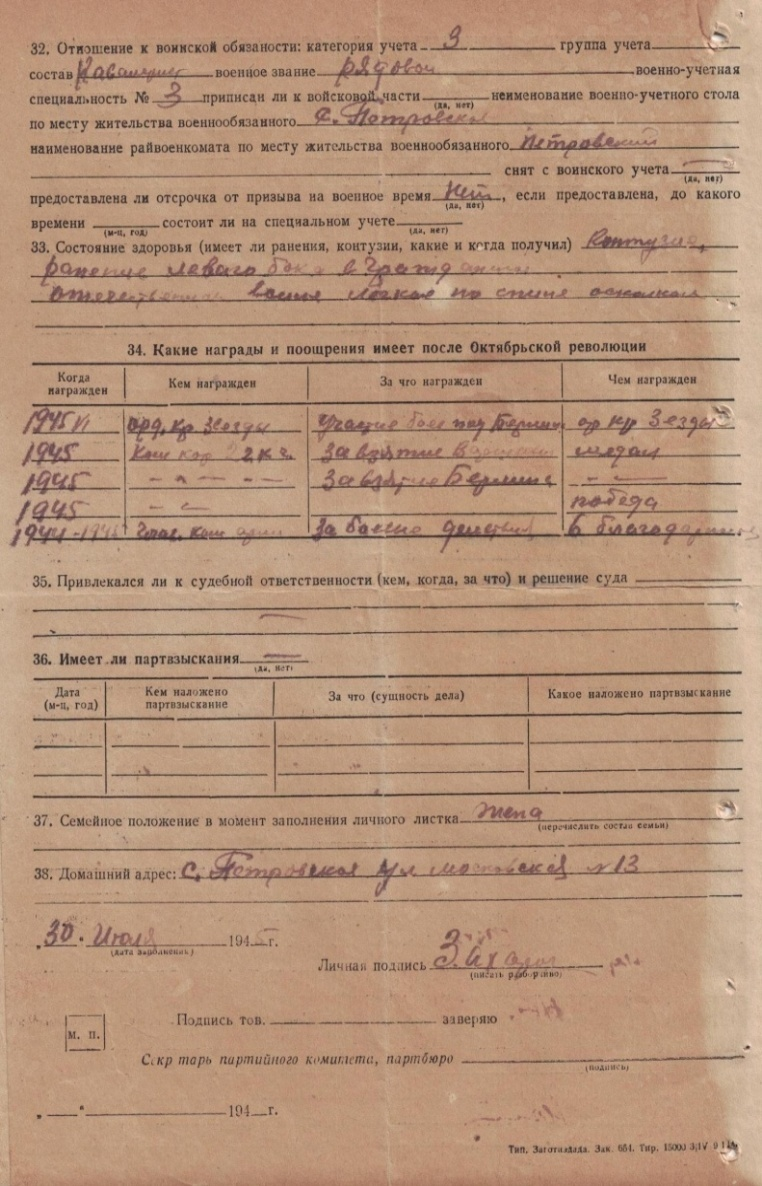 32. Отношение к воинской обязаности: категория учета 3 группа учета
состав Кавалерист военное звание рядовой военно-учетная
специальность № 3 приписан ли к войсковой части (да, нет) наименование военно-учетного стола
по месту жительства военнообязанного с. Петровское
наименование райвоенкомата по месту жительства военнообязанного Петровский
снят с воинского учета — (да, нет)
предоставлена ли отсрочка от призыва на военное время Нет (да, нет), если предоставлена, до какого
времени (м-ц, год) состоит ли на специальном учете (да, нет)
33. Состояние здоровья (имеет ли ранения, контузии, какие и когда получил) Контузия,
ранение леваго бока в
отечественной легкое по спине осколком
34. Какие награды и поощрения имеет после Октябрьской революции
Когда награжден Кем награжден За что награжден Чем награжден
1945 VI орд. кр Звезды участие боев под ор кр Звезды
1945 За взятие медал
1945 - " - - - За взятие Берлина - " -
1945 - " - победа
1944-1945 За боевые действия 6 благодарностей
35. Привлекался ли к судебной ответственности (кем, когда, за что) и решение суда
—
36. Имеет ли партвзыскания — (да, нет)
Дата (м-ц, год) Кем наложено партвзыскание За что (сущность дела) Какое наложено партвзыскание
37. Семейное положение в момент заполнения личного листка жена
(перечислить состав семьи)
38. Домашний адрес: с. Петровское ул московская № 13
„30" Июля 1945 г.
(дата заполнения)
Личная подпись
(писать разборчиво)
Подпись тов. заверяю
м. п.
Секр тарь партийного комитета, партбюро
(подпись)
„ — " 194 г.
Тип. Заготиздата. Зак. 654. Тир. 15000